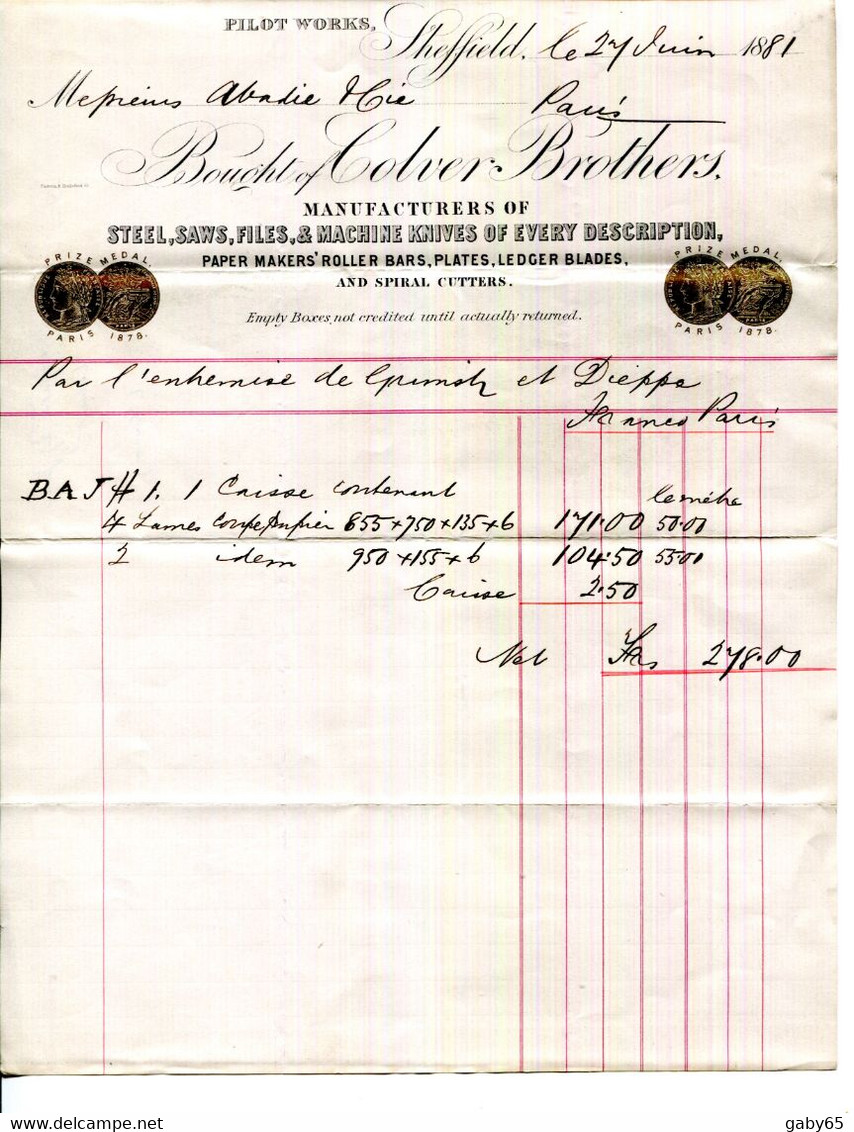 PILOT WORKS,
Sheffield, le 27 Juin 1881
Messieurs Abadie & Cie Paris
Bought of Colver Brothers,
MANUFACTURERS OF
STEEL, SAWS, FILES, & MACHINE KNIVES OF EVERY DESCRIPTION,
PAPER MAKERS' ROLLER BARS, PLATES, LEDGER BLADES,
AND SPIRAL CUTTERS.
PRIZE MEDAL.
PARIS 1878.
PRIZE MEDAL.
PARIS 1878.
Empty Boxes, not credited until actually returned.
Par l'entremise de Grimsby et Dieppe
Franco Paris
B.A.J # 1. 1 Caisse contenant le mètre
4 Lames coupe papier 855+750+135+6 171.00 50.00
2 idem 950+155+6 104.50 55.00
Caisse 2.50
Net Frs 278.00
gaby65